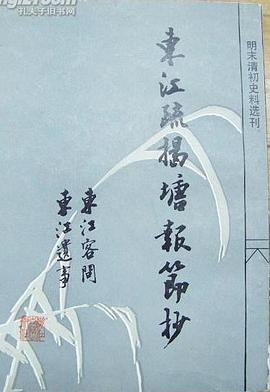 孔夫子旧书网
明末清初史料选刊
東江疏揭塘報節抄
東江客問
東江遺事